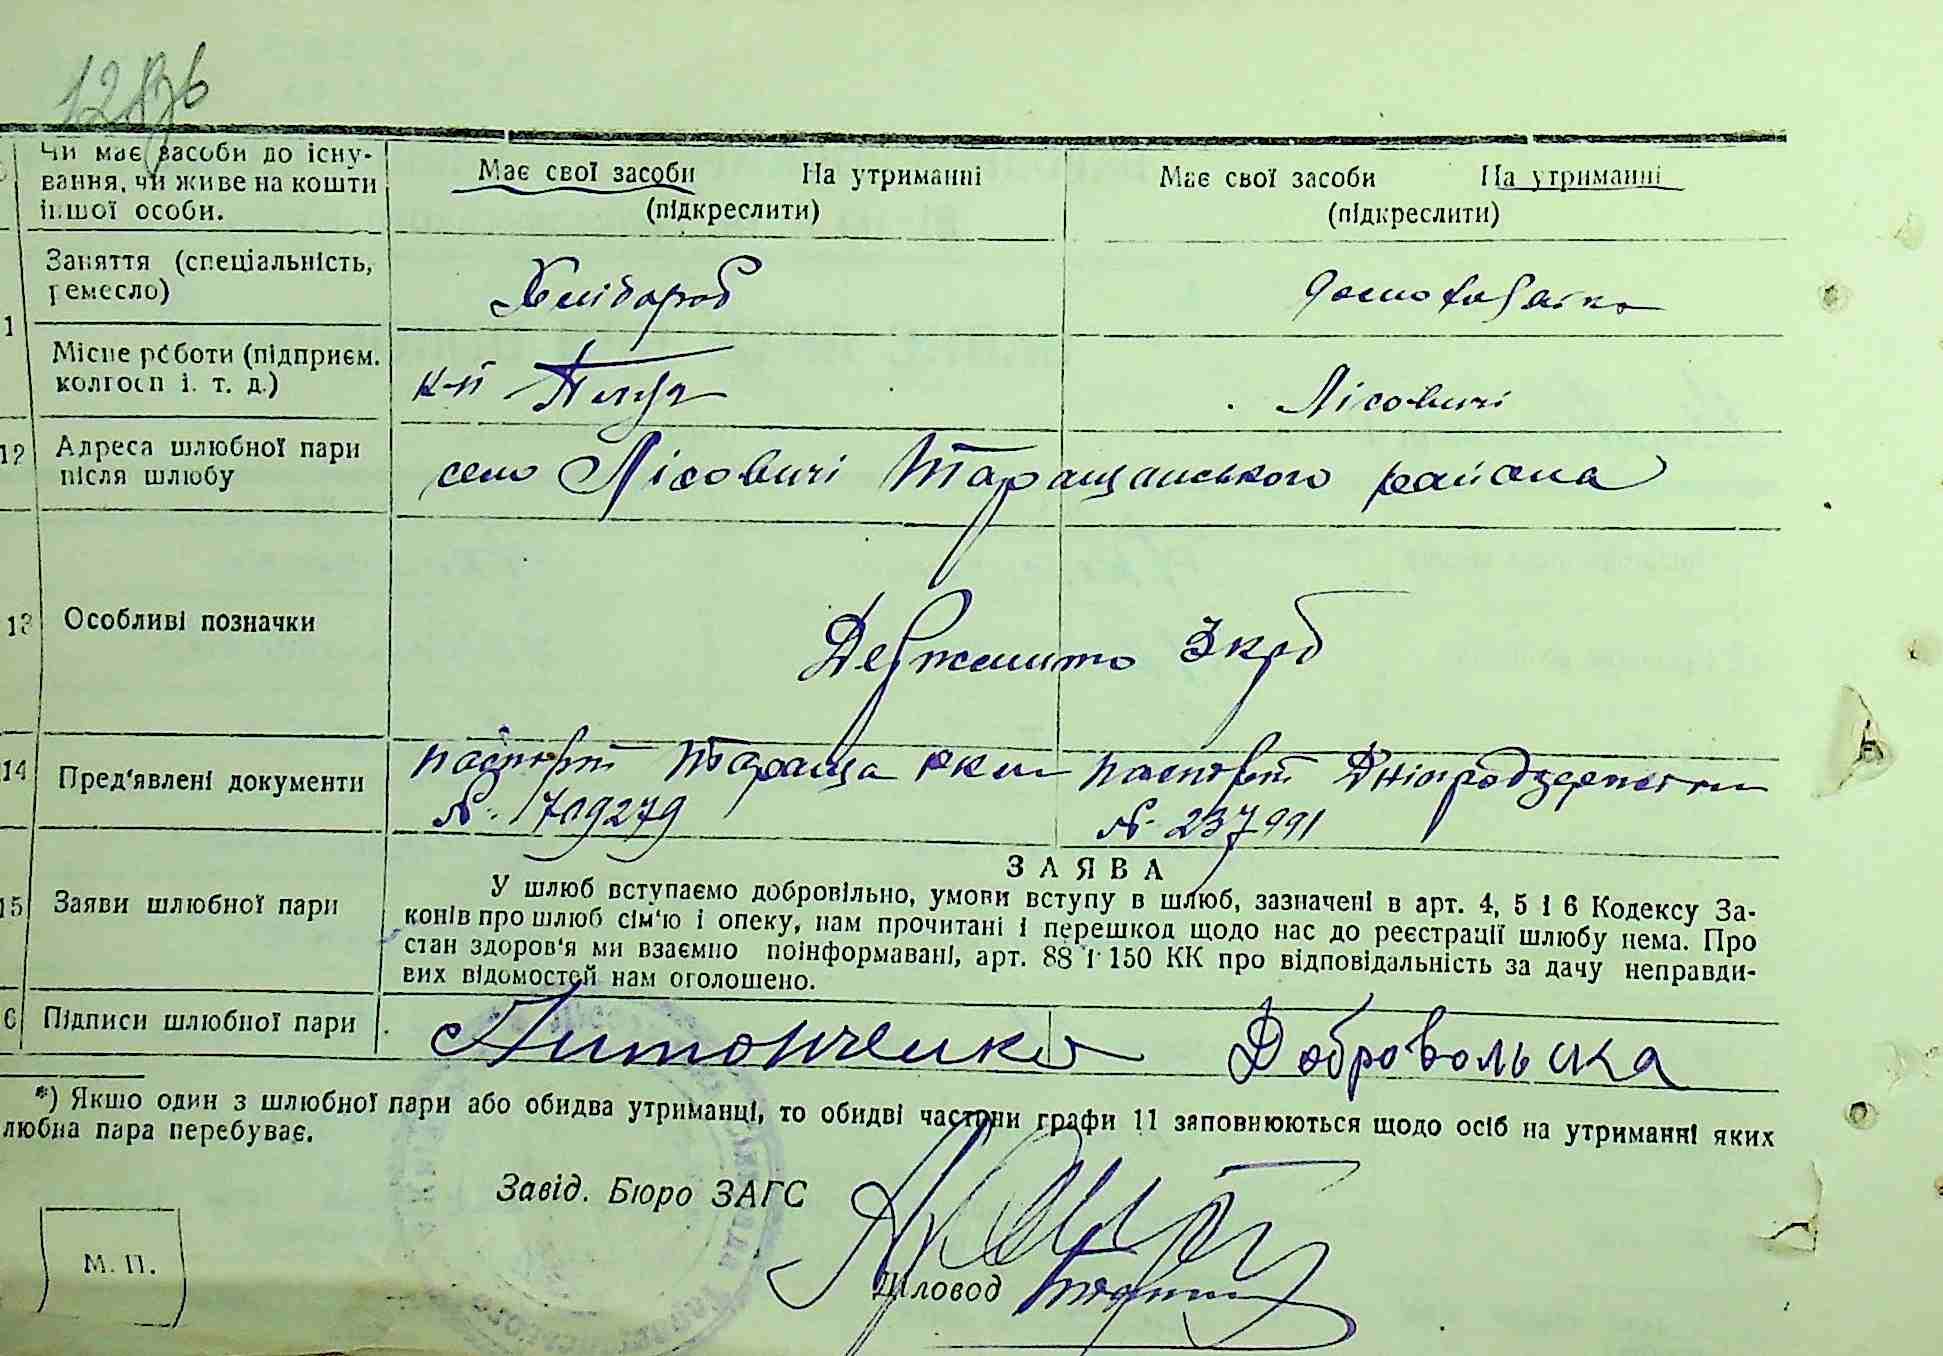 Чи має засоби до існу-
вання, чи живе на кошти
іншої особи.
Має свої засоби На утриманні
(підкреслити)
Має свої засоби На утриманні
(підкреслити)
1
Заняття (спеціальність,
ремесло)
Хлібороб
Місце роботи (підприєм.
колгосп і. т. д.)
к-п
Лісовичі
12
Адреса шлюбної пари
після шлюбу
село Лісовичі Таращанського района
13
Особливі позначки
Держмито 3 крб
14
Пред'явлені документи
паспорт Тараща
№ 1709279
паспорт
№ 237991
15
Заяви шлюбної пари
ЗАЯВА
У шлюб вступаємо добровільно, умови вступу в шлюб, зазначені в арт. 4, 5 і 6 Кодексу За-
конів про шлюб сім'ю і опеку, нам прочитані і перешкод щодо нас до реєстрації шлюбу нема. Про
стан здоров'я ми взаємно поінформавані, арт. 88 і 150 КК про відповідальність за дачу неправди-
вих відомостей нам оголошено.
6
Підписи шлюбної пари
Антонченко Добровольска
*) Якшо один з шлюбної пари або обидва утриманці, то обидві частини графи 11 заповнюються щодо осіб на утриманні яких
любна пара перебуває.
Завід. Бюро ЗАГС
М. П.
Діловод